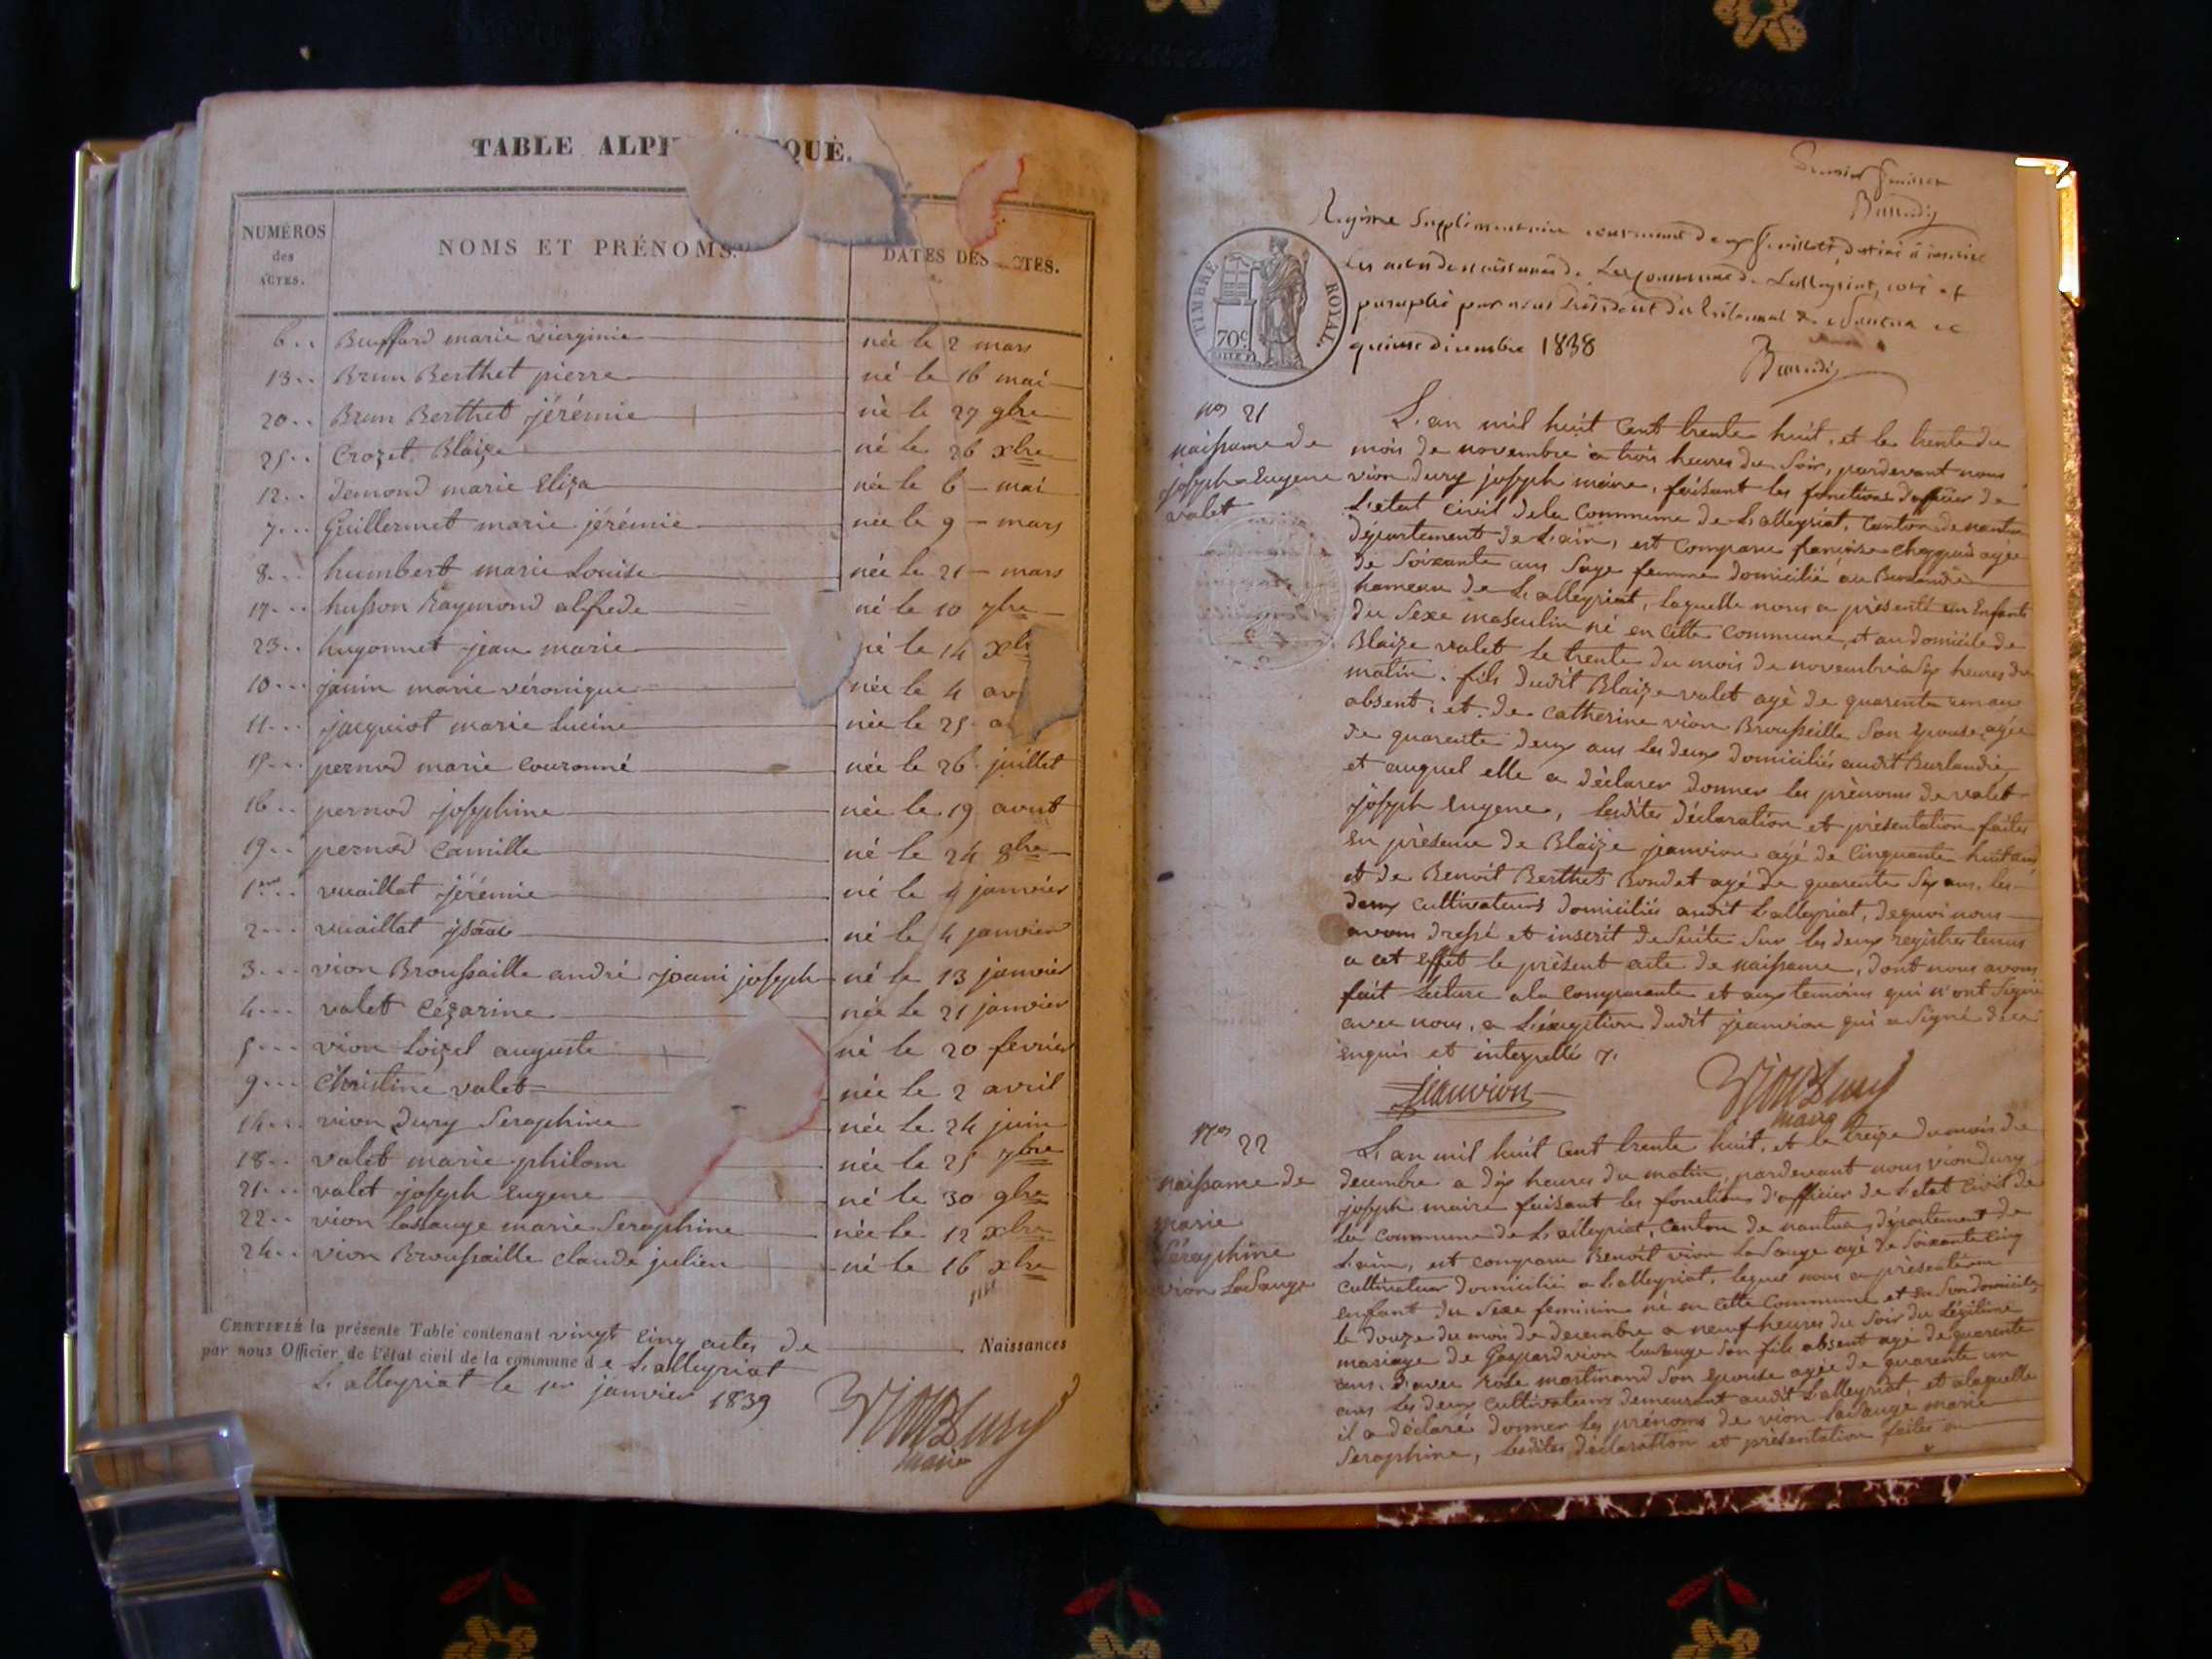 TABLE ALPH
QUE.
NUMÉROS
des
ACTES.
NOMS ET PRÉNOMS.
DATES DES CTES.
6 .. Buffard marie vierginie née le 2 mars
13 .. Brun Berthet pierre né le 16 mai
20 .. Brun Berthet jérémie né le 27 9bre
25 .. Crozet Blaize né le 26 xbre
12 .. demond marie Eliza née le 6 mai
7 ... Guillermet marie jérémie née le 9 mars
8 ... humbert marie Louise née le 21 mars
17 ... husson Raymond alfrede né le 10 7bre
23 .. hugonnet jean marie né le 14 xbr
10 ... janin marie véronique née le 4 av
11 ... jacquiot marie Lucine née le 25 a
15 ... pernod marie couronné née le 26 juillet
16 .. pernod josephine née le 19 avut
19 .. pernod Camille né le 24 8bre
1er .. vuaillat jérémie né le 4 janvier
2 ... vuaillat jsaac né le 4 janvier
3 ... vion Broussaille andré joani joseph né le 13 janvier
4 ... valet Cézarine née le 21 janvier
5 ... vion Loizel auguste né le 20 fevrier
9 ... Christine valet née le 2 avril
14 ... vion Dury Seraphine née le 24 juin
18 .. valet marie philom née le 25 7bre
21 ... valet joseph Eugene né le 30 9bre
22 .. vion Lasauge marie Seraphine née le 12 xbre
24 .. vion Broussaille claude julien né le 16 xbre
CERTIFIÉ la présente Table contenant vingt cinq actes de Naissances
par nous Officier de l'état civil de la commune de L'alleyriat
L'alleyriat le 1er janvier 1839
VionDury
maire
premier feuillet
Registre Supplémentaire contenant deux feuillets, destiné à inscrire
les actes de naissances de La Commune de Lalleyriat, coté et
paraphé par nous Président du Tribunal de Nantua ce
quinze décembre 1838
TIMBRE ROYAL.
70c.
nos 21
naissance de
joseph Eugene
valet
L'an mil huit Cent trente huit, et le trente du
mois de novembre à trois heures du Soir, pardevant nous
vion Dury joseph maire, faisant les fonctions d'officier de
L'etat Civil de la Commune de L'alleyriat, Canton de nantua
département de L'ain, est Comparu françoise agée
de Soixante ans Sage femme domicilié au Burlandie
hameau de L'alleyriat, laquelle nous a présenté un Enfant
du Sexe masculin né en Cette Commune, et au domicile de
Blaize valet le trente du mois de novembre à Six heures du
matin, fils dudit Blaize valet agé de quarente un ans
absent, et de Catherine vion Brousseille Son Epouse, agée
de quarente deux ans les deux domiciliés audit Burlandie,
et auquel elle a déclarer donner les prénoms de valet
joseph Eugene, lesdites déclaration et présentation faites
En présence de Blaize jeanvion agé de Cinquante huit ans
et de Benoit Berthet Bondet agé de quarente Six ans, les
deux Cultivateurs domiciliés audit L'alleyriat, de quoi nous
avons dressé et inscrit de Suite Sur les deux registres tenus
a cet Effet le présent acte de naissance, dont nous avons
fait Lecture a la Comparante et aux temoins qui n'ont Signé
avec nous, a L'éxeption dudit jeanvion qui a Signé de ce
enquis et interpellés
jeanvion VionDury
maire
nos 22
naissance de
marie
Séraphine
vion LaSauge
L'an mil huit Cent trente huit, et le treize du mois de
decembre a dix heures du matin, pardevant nous vion Dury
joseph maire faisant les fonctions d'officier de L'etat Civil de
la Commune de L'alleyriat, Canton de nantua, département de
L'ain, est comparu Benoit vion LaSauge agé de Soixante Cinq
Cultivateur domicilié a L'alleyriat, lequel nous a présenté un
enfant du Sexe feminin né en Cette Commune et en Son domicile,
le douze du mois de decembre a neuf heures du Soir du Légitime
mariage de Gaspard vion lasauge Son fils absent agé de quarente
ans, d'avec Rose martinand Son Epouse agée de quarente un
ans les deux Cultivateurs demeurant audit L'alleyriat, et a laquelle
il a déclaré donner les prénoms de vion laSauge marie
Seraphine, lesdites déclaration et présentation faites en